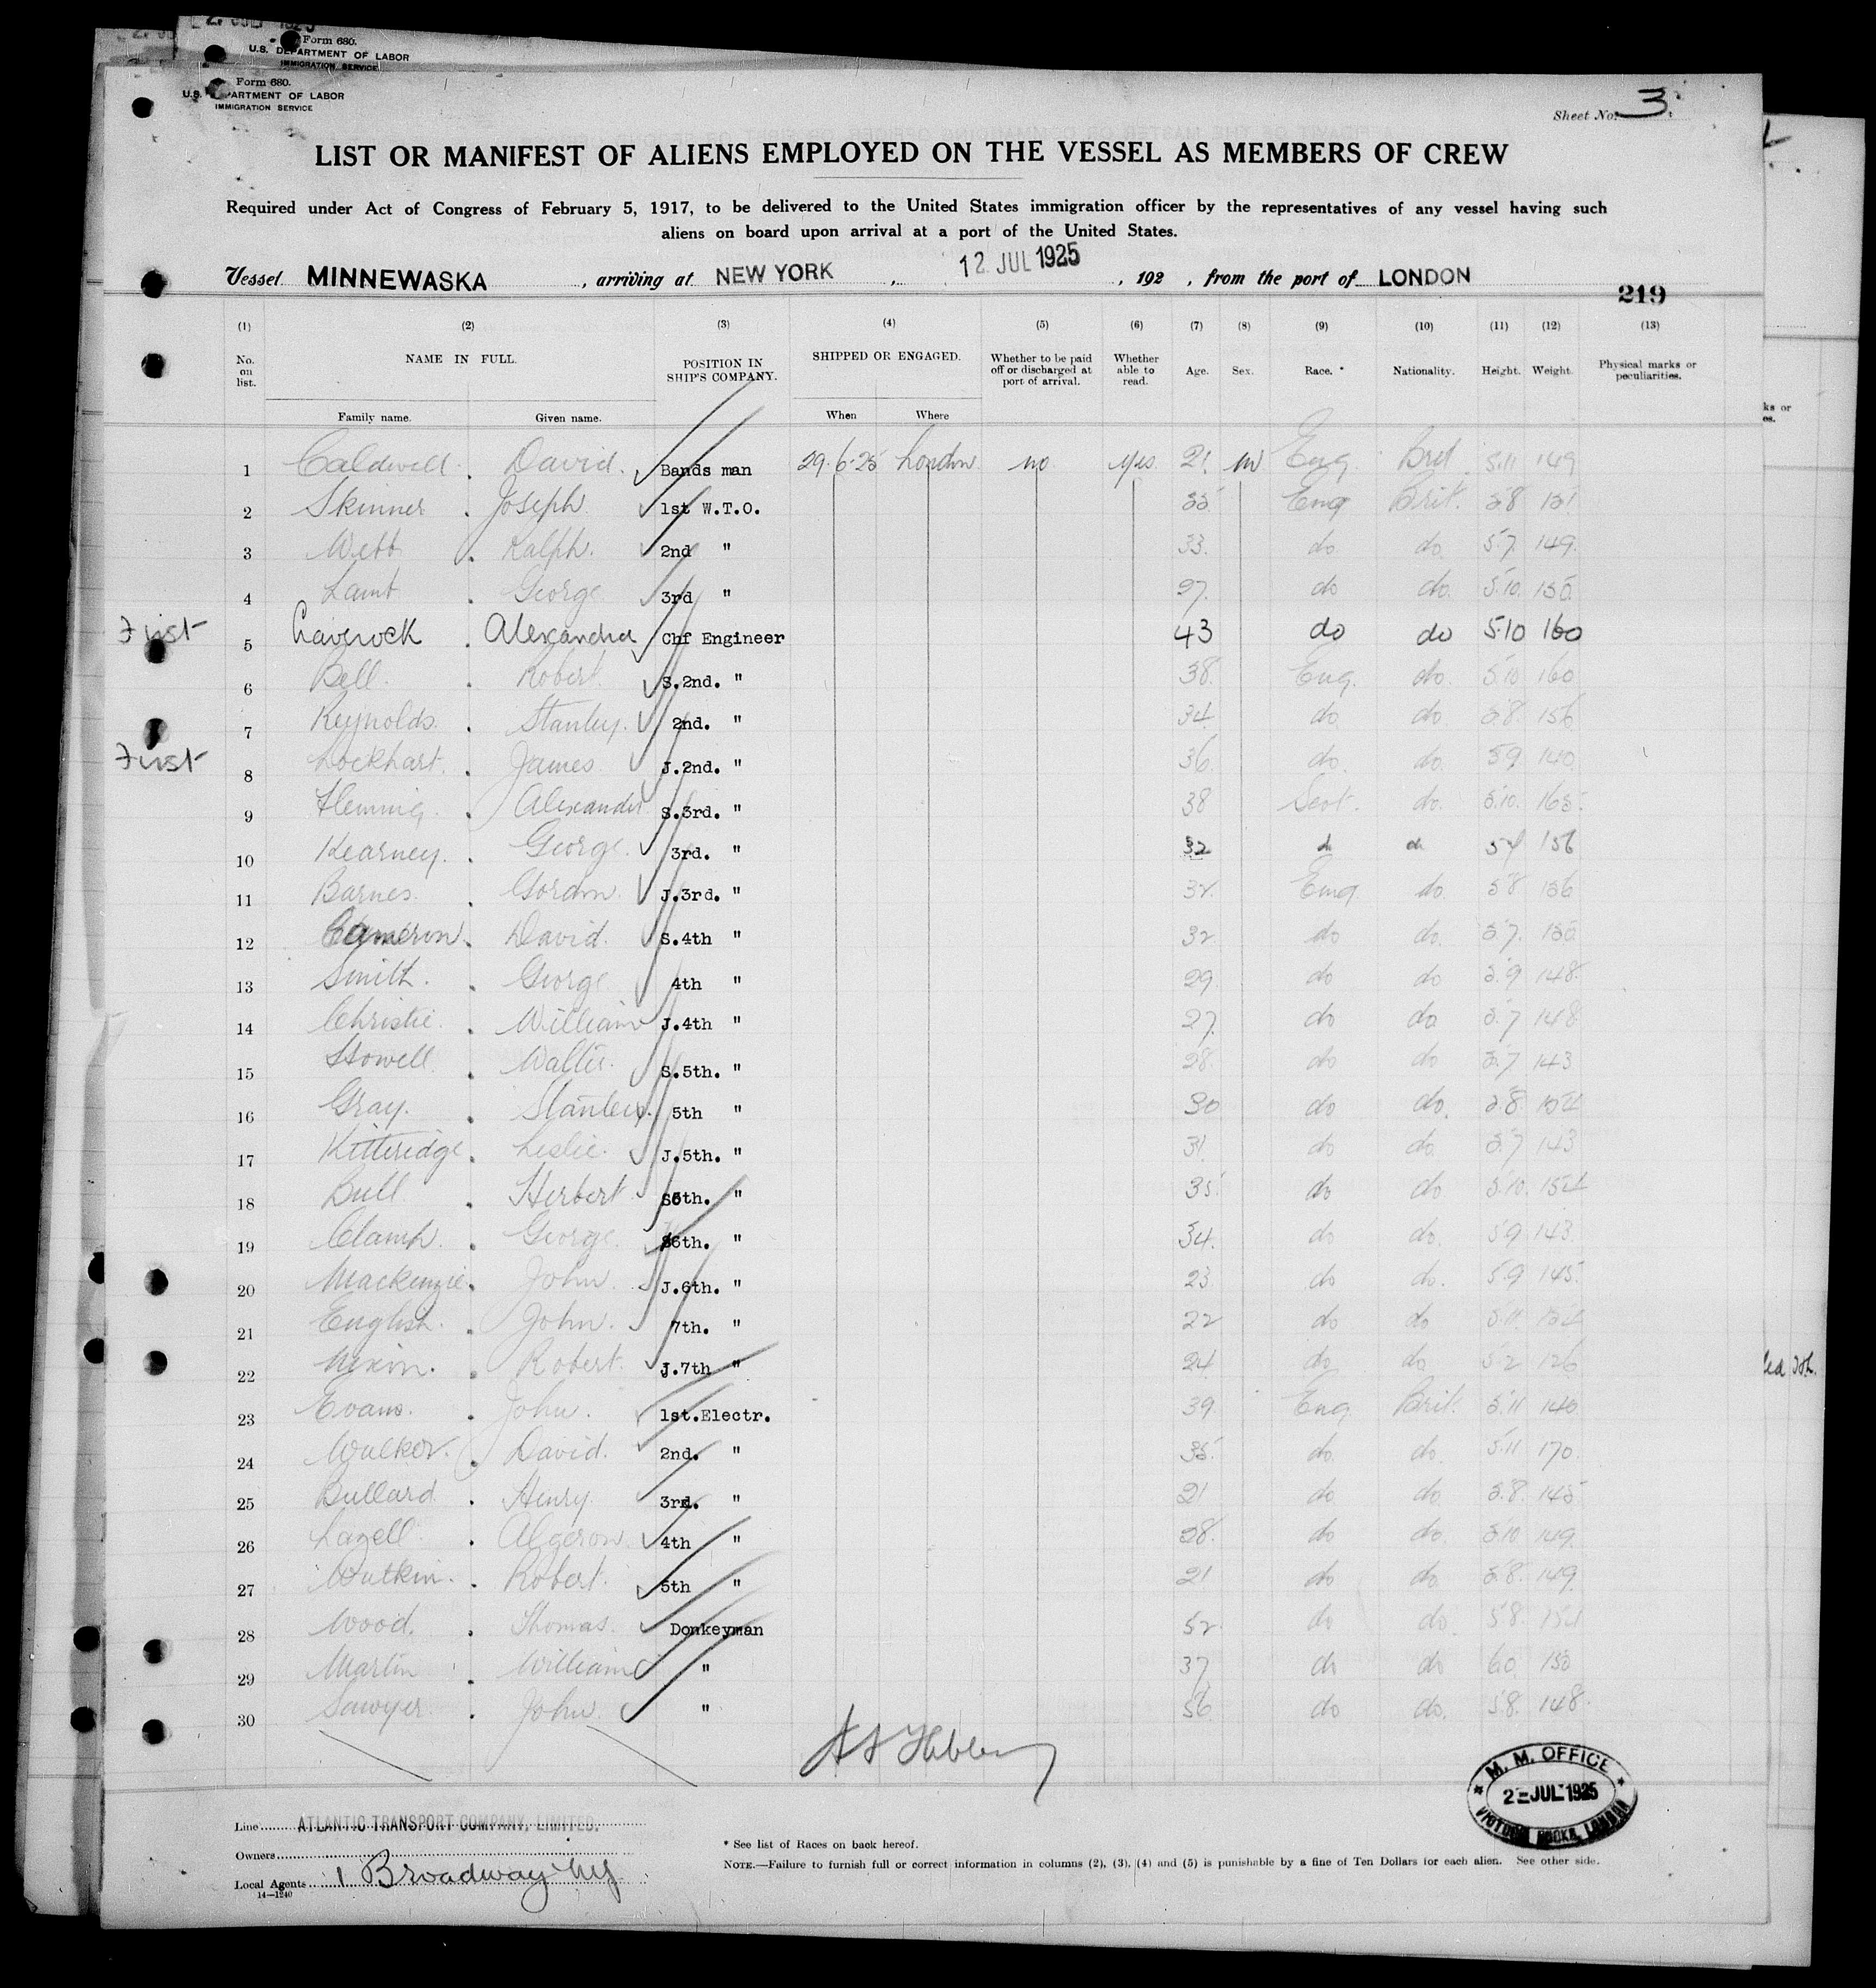 2. JUL 1925
Form 680.
U.S. DEPARTMENT OF LABOR
IMMIGRATION SERVICE
Form 680.
U.S. DEPARTMENT OF LABOR
IMMIGRATION SERVICE
Sheet No. 3
LIST OR MANIFEST OF ALIENS EMPLOYED ON THE VESSEL AS MEMBERS OF CREW
Required under Act of Congress of February 5, 1917, to be delivered to the United States immigration officer by the representatives of any vessel having such
aliens on board upon arrival at a port of the United States.
Vessel MINNEWASKA, arriving at NEW YORK, 12 JUL 1925, 192 , from the port of LONDON
219
(1) (2) (3) (4) (5) (6) (7) (8) (9) (10) (11) (12) (13)
No. on list. NAME IN FULL. POSITION IN SHIP'S COMPANY. SHIPPED OR ENGAGED. Whether to be paid off or discharged at port of arrival. Whether able to read. Age. Sex. Race. * Nationality. Height. Weight. Physical marks or peculiarities.
Family name. Given name. When Where
1 Caldwell David Bands man 29.6.25 London no yes 21 m Eng Brit 5.11 149
2 Skinner Joseph 1st W.T.O. 35 Eng Brit. 5.8 151
3 Webb Ralph. 2nd " 33 do do 5.7 149
4 Lamb George 3rd " 27 do do 5.10 150
First 5 Laverock Alexander Chf Engineer 43 do do 5.10 160
6 Bell Robert S.2nd. " 38 Eng. do 5.10 160
7 Reynolds Stanley 2nd. " 34 do do 5.8 156
First 8 Lockhart James J.2nd. " 36 do do 5.9 140
9 Fleming Alexander S.3rd. " 38 Scot. do. 5.10 165
10 Kearney George 3rd. " 32 do do 5.4 136
11 Barnes Gordon J.3rd. " 32 Eng do 5.8 136
12 Cameron David S.4th " 32 do do 5.7 150
13 Smith George 4th " 29 do do 5.9 148
14 Christie William J.4th " 27 do do 5.7 148
15 Stowell Walter S.5th. " 28 do do 5.7 143
16 Gray. Stanley 5th " 30 do do. 5.8 154
17 Kitteridge Leslie J.5th. " 31 do do 5.7 143
18 Bull Herbert S6th. " 35 do do 5.10 154
19 Clamp George 6th. " 34 do do 5.9 143
20 Mackenzie John J.6th. " 23 do do. 5.9 145
21 English John. 7th. " 22 do do 5.11 154
22 Nixon. Robert. J.7th " 24 do do 5.2 126
23 Evans. John. 1st.Electr. 39 Eng Brit. 5.11 140
24 Walker. David. 2nd. " 35 do do 5.11 170
25 Bullard Henry 3rd. " 21 do do 5.8 145
26 Lazell Algeron 4th " 28 do do. 5.10 149
27 Watkin. Robert. 5th " 21 do do 5.8 149
28 Wood. Thomas. Donkeyman 52 do do. 5.8 154
29 Martin William " 37 do do 6.0 150
30 Sawyer John " 56 do do. 5.8 148
M. M. OFFICE
2-JUL 1925
VICTORIA DOCKS, LONDON
Line ATLANTIC TRANSPORT COMPANY, LIMITED.
Owners
Local Agents 1 Broadway NY
14—1240
* See list of Races on back hereof.
NOTE.—Failure to furnish full or correct information in columns (2), (3), (4) and (5) is punishable by a fine of Ten Dollars for each alien. See other side.